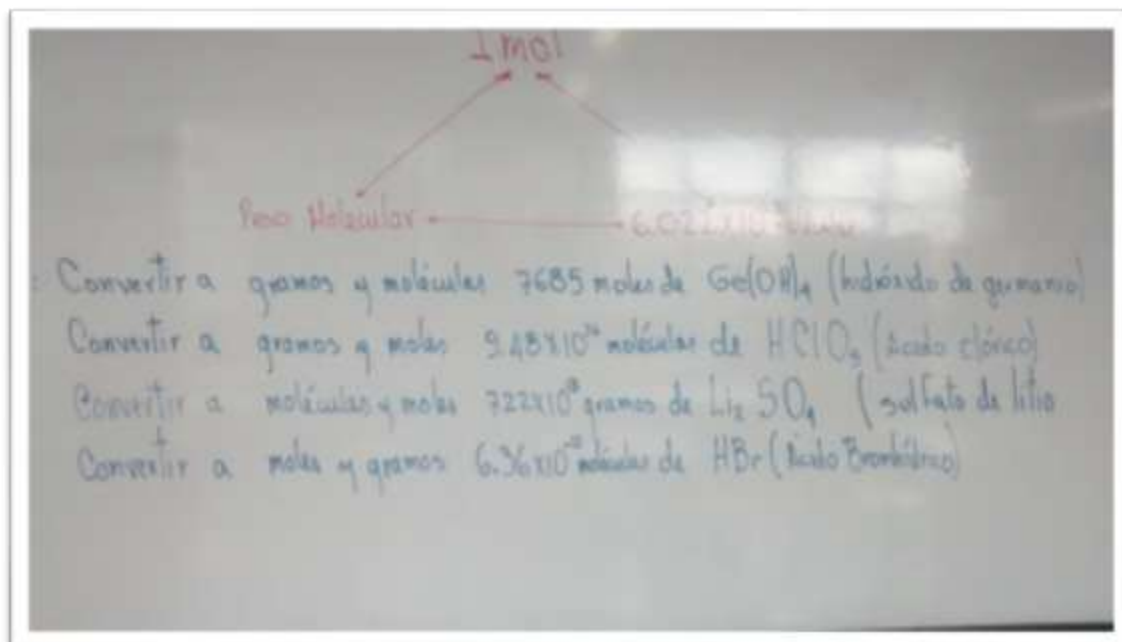 1 mol
Peso Molecular 6.022x10
Convertir a gramos y moléculas 7685 moles de Ge(OH)4 (hidróxido de germanio)
Convertir a gramos y moles moléculas de HClO3 (ácido clórico)
Convertir a moléculas y moles gramos de Li2 SO4 (sulfato de litio
Convertir a moles y gramos moléculas de HBr (ácido Bromhídrico)